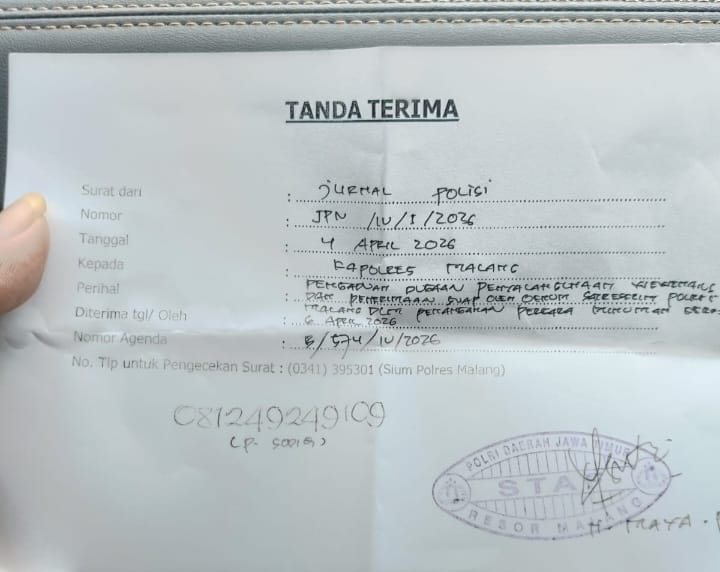 TANDA TERIMA
Surat dari : JURNAL POLISI
Nomor : JPN /IV/I/2026
Tanggal : 4 APRIL 2026
Kepada : KAPOLRES MALANG
Perihal : PENGADUAN DUGAAN PENYALAHGUNAAN WEWENANG
DAN PENERIMAAN SUAP OLEH OKNUM SATRESKRIM POLRES
MALANG DLM PENANGANAN PERKARA
Diterima tgl/ Oleh : 6 APRIL 2026
Nomor Agenda : B/574/IV/2026
No. Tlp untuk Pengecekan Surat : (0341) 395301 (Sium Polres Malang)
081249249109
(P.
POLRI DAERAH JAWA TIMUR
RESOR MALANG